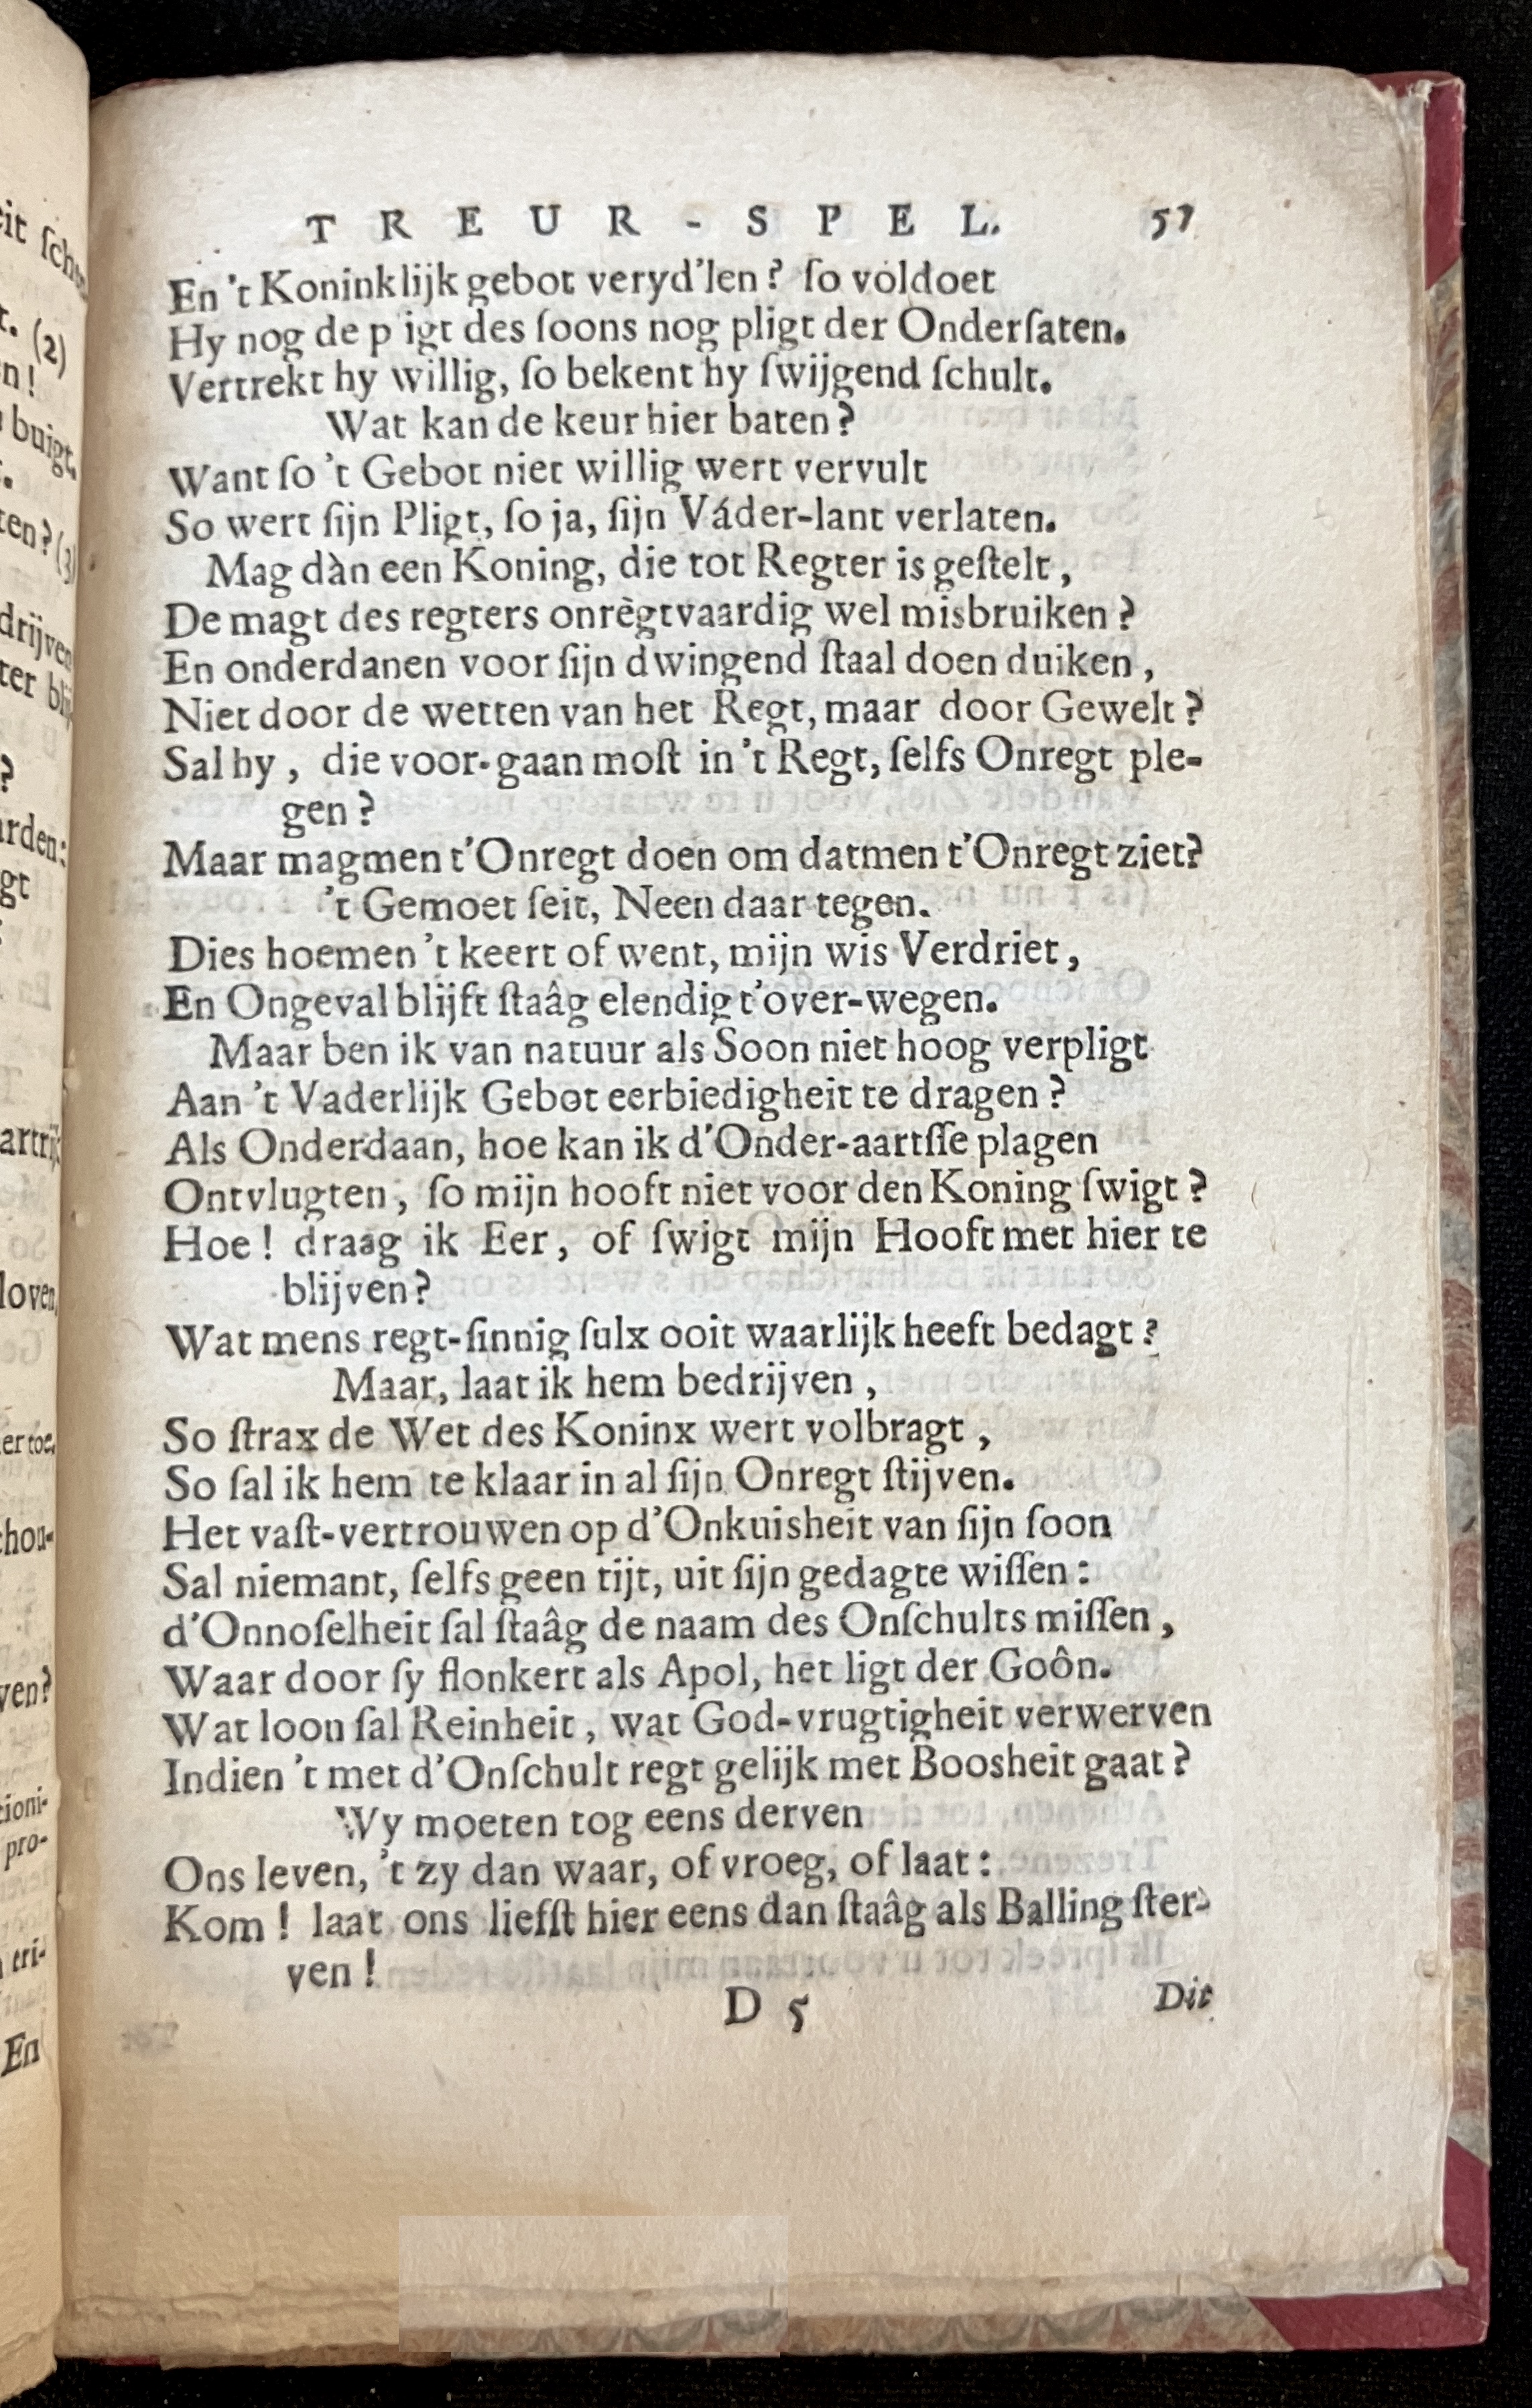 TREUR-SPEL. 57
En 't Koninklijk gebot veryd'len? ſo voldoet
Hy nog de p igt des ſoons nog pligt der Onderſaten.
Vertrekt hy willig, ſo bekent hy ſwijgend ſchult.
Wat kan de keur hier baten?
Want ſo 't Gebot niet willig wert vervult
So wert ſijn Pligt, ſo ja, ſijn Váder-lant verlaten.
Mag dàn een Koning, die tot Regter is geſtelt,
De magt des regters onrègtvaardig wel misbruiken?
En onderdanen voor ſijn dwingend ſtaal doen duiken,
Niet door de wetten van het Regt, maar door Gewelt?
Sal hy, die voor-gaan moſt in 't Regt, ſelfs Onregt ple-
gen?
Maar magmen t'Onregt doen om datmen t'Onregt ziet?
't Gemoet ſeit, Neen daar tegen.
Dies hoemen 't keert of went, mijn wis Verdriet,
En Ongeval blijft ſtaâg elendig t'over-wegen.
Maar ben ik van natuur als Soon niet hoog verpligt
Aan 't Vaderlijk Gebot eerbiedigheit te dragen?
Als Onderdaan, hoe kan ik d'Onder-aartſſe plagen
Ontvlugten, ſo mijn hooft niet voor den Koning ſwigt?
Hoe! draag ik Eer, of ſwigt mijn Hooft met hier te
blijven?
Wat mens regt-ſinnig ſulx ooit waarlijk heeft bedagt?
Maar, laat ik hem bedrijven,
So ſtrax de Wet des Koninx wert volbragt,
So ſal ik hem te klaar in al ſijn Onregt ſtijven.
Het vaſt-vertrouwen op d'Onkuisheit van ſijn ſoon
Sal niemant, ſelfs geen tijt, uit ſijn gedagte wiſſen:
d'Onnoſelheit ſal ſtaâg de naam des Onſchults miſſen,
Waar door ſy flonkert als Apol, het ligt der Goôn.
Wat loon ſal Reinheit, wat God-vrugtigheit verwerven
Indien 't met d'Onſchult regt gelijk met Boosheit gaat?
Wy moeten tog eens derven
Ons leven, 't zy dan waar, of vroeg, of laat:
Kom! laat ons liefſt hier eens dan ſtaâg als Balling ſter-
ven!
D 5 Dit